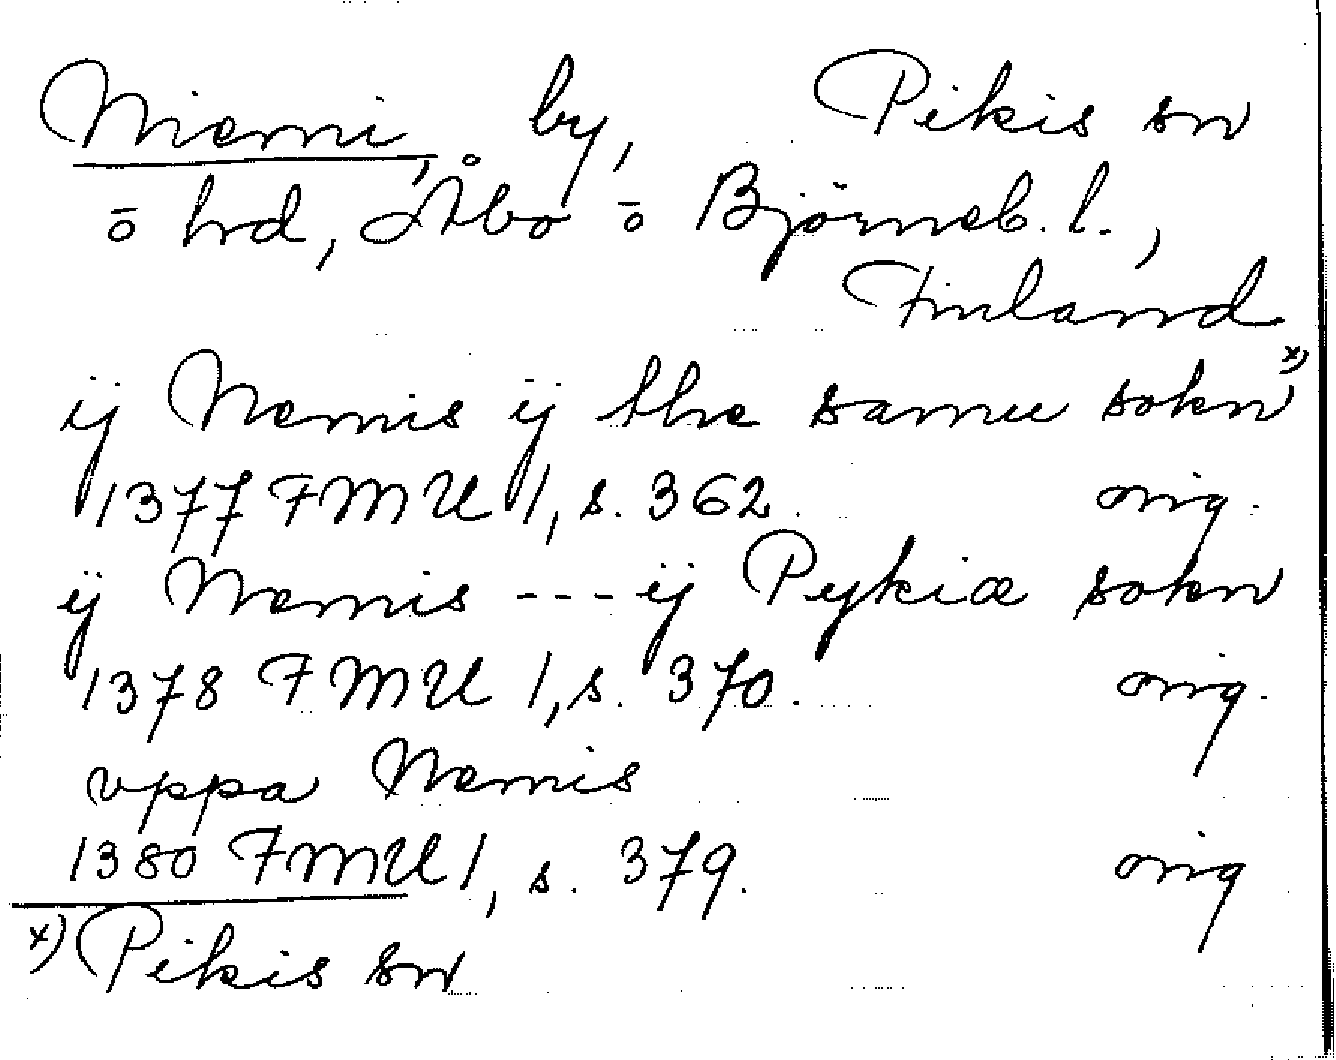 Niemi, by, Pikis sn
o hd, Åbo o Björneb. l.,
Finland
ij Nemis ij the samu sokn x)
1377 FMU 1, s. 362. orig.
ij Nemis --- ij Pykiæ sokn
1378 FMU 1, s. 370. orig.
vppa Nemis
1380 FMU 1, s. 379. orig
x) Pikis sn